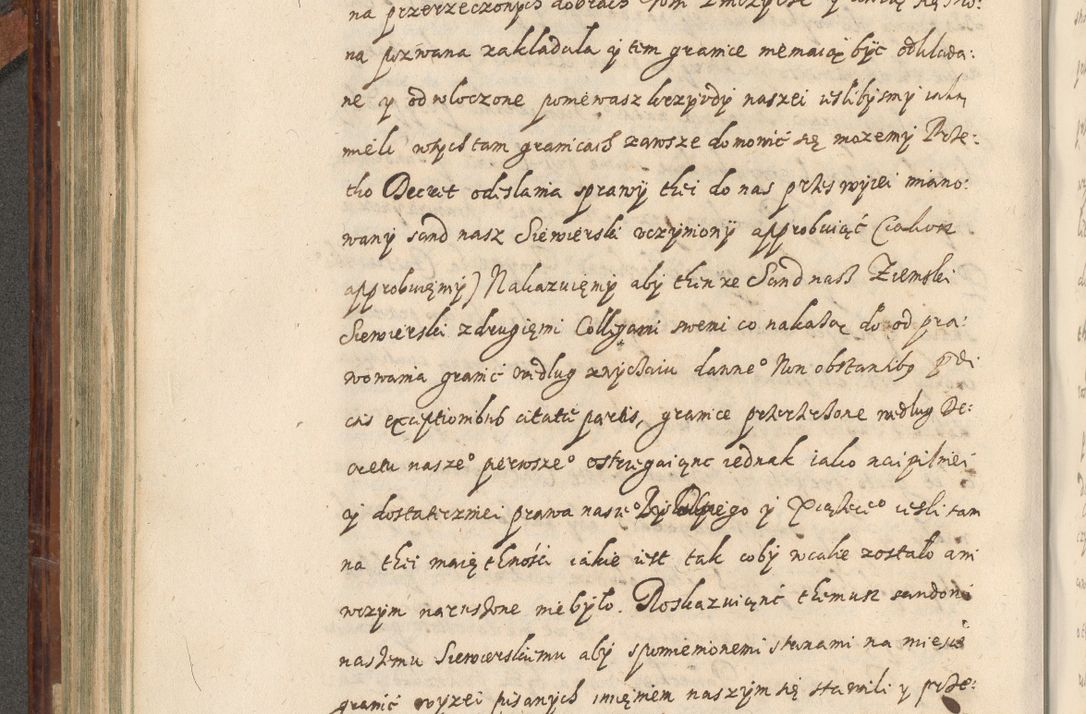 na przerzeczonych dobrach
na pozwana zakładala y tem granice niemaią bÿc odkłada:
ne y odwłoczone poniewasz krzywdÿ naszei iesliby smÿ iaką
mieli wtych tam granicach zawsze domowić się możemy Prze:
tho Decret odesłania sprawÿ thei do nas przes wyżei miano:
wanÿ sand nasz Siewierski vczynionÿ approbuiąć (iakosz
approbuięmy) Nakazuięmy aby then że Sand nasz Ziemski
Siewierski z drugięmi Colligami swemi co nakażą do od pra:
wowania granić według zwyczaiu danneo Non obstantibꝫ
exceptionibus citatæ partis, granice przerzeżone według De:
cretu naszeo perwszeo ostrzegaiąnc iednak iako naipilniei
y dostatecznei prawa naszeo y Xciążęceo iesli tam
na thei maięthności iakie iest tak coby wcale zostało ani
wczym narusżone niebyło. Roskazuiąnć themusz sandoni
naszemu Siewierskiemu aby spomienionemi stranami na miesce
granić wyżei pisanych imięniem naszym się stawili y prze: